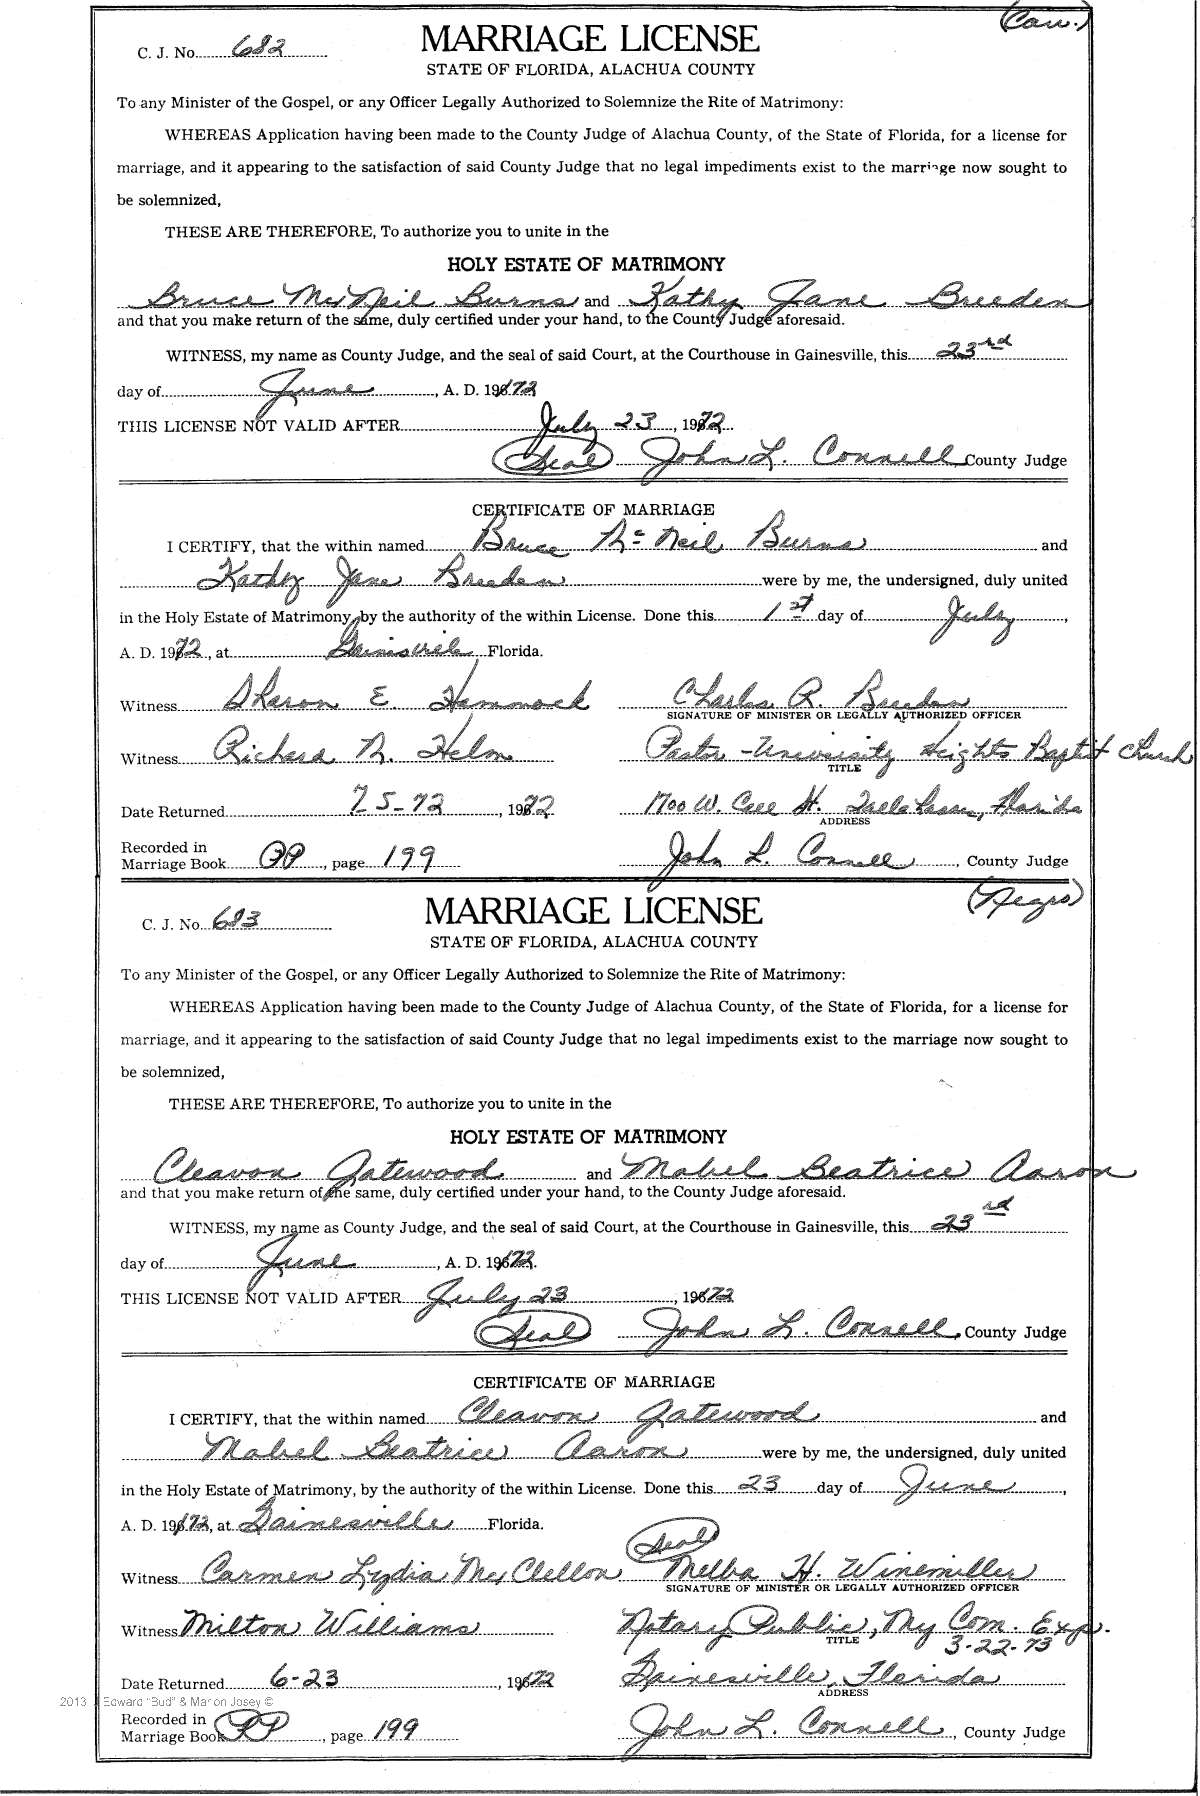 (Cau.)
C. J. No. 682
MARRIAGE LICENSE
STATE OF FLORIDA, ALACHUA COUNTY
To any Minister of the Gospel, or any Officer Legally Authorized to Solemnize the Rite of Matrimony:
WHEREAS Application having been made to the County Judge of Alachua County, of the State of Florida, for a license for
marriage, and it appearing to the satisfaction of said County Judge that no legal impediments exist to the marriage now sought to
be solemnized,
THESE ARE THEREFORE, To authorize you to unite in the
HOLY ESTATE OF MATRIMONY
Bruce McNeil Burns and Kathy Jane Breeden
and that you make return of the same, duly certified under your hand, to the County Judge aforesaid.
WITNESS, my name as County Judge, and the seal of said Court, at the Courthouse in Gainesville, this 23rd
day of June, A. D. 1972
THIS LICENSE NOT VALID AFTER July 23, 1972
(Seal) John L. Connell County Judge
CERTIFICATE OF MARRIAGE
I CERTIFY, that the within named Bruce Mc Neil Burns and
Kathy Jane Breeden were by me, the undersigned, duly united
in the Holy Estate of Matrimony, by the authority of the within License. Done this 1st day of July,
A. D. 1972, at Gainisville Florida.
Witness Sharon E. Hammock Charles R. Breeden
SIGNATURE OF MINISTER OR LEGALLY AUTHORIZED OFFICER
Witness Richard M. Helm Pastor - University Heights Baptist Church
TITLE
Date Returned 7-5-72, 1972 1700 W. Call St. Tallahassee, Florida
ADDRESS
Recorded in
Marriage Book PP, page 199 John L. Connell, County Judge
(Negro)
C. J. No. 683
MARRIAGE LICENSE
STATE OF FLORIDA, ALACHUA COUNTY
To any Minister of the Gospel, or any Officer Legally Authorized to Solemnize the Rite of Matrimony:
WHEREAS Application having been made to the County Judge of Alachua County, of the State of Florida, for a license for
marriage, and it appearing to the satisfaction of said County Judge that no legal impediments exist to the marriage now sought to
be solemnized,
THESE ARE THEREFORE, To authorize you to unite in the
HOLY ESTATE OF MATRIMONY
Cleavon Gatewood and Mabel Beatrice Aaron
and that you make return of the same, duly certified under your hand, to the County Judge aforesaid.
WITNESS, my name as County Judge, and the seal of said Court, at the Courthouse in Gainesville, this 23rd
day of June, A. D. 1972.
THIS LICENSE NOT VALID AFTER July 23, 1972
(Seal) John L. Connell, County Judge
CERTIFICATE OF MARRIAGE
I CERTIFY, that the within named Cleavon Gatewood and
Mabel Beatrice Aaron were by me, the undersigned, duly united
in the Holy Estate of Matrimony, by the authority of the within License. Done this 23 day of June,
A. D. 1972, at Gainesville Florida.
(Seal)
Witness Carmen Lydia McClellon Melba H. Winemiller
SIGNATURE OF MINISTER OR LEGALLY AUTHORIZED OFFICER
Witness Milton Williams Notary Public, My Com. Exp.
TITLE 3-22-73
Date Returned 6-23, 1972 Gainesville, Florida
ADDRESS
2013 Edward "Bud" & Marion Josey ©
Recorded in
Marriage Book PP, page 199 John L. Connell, County Judge